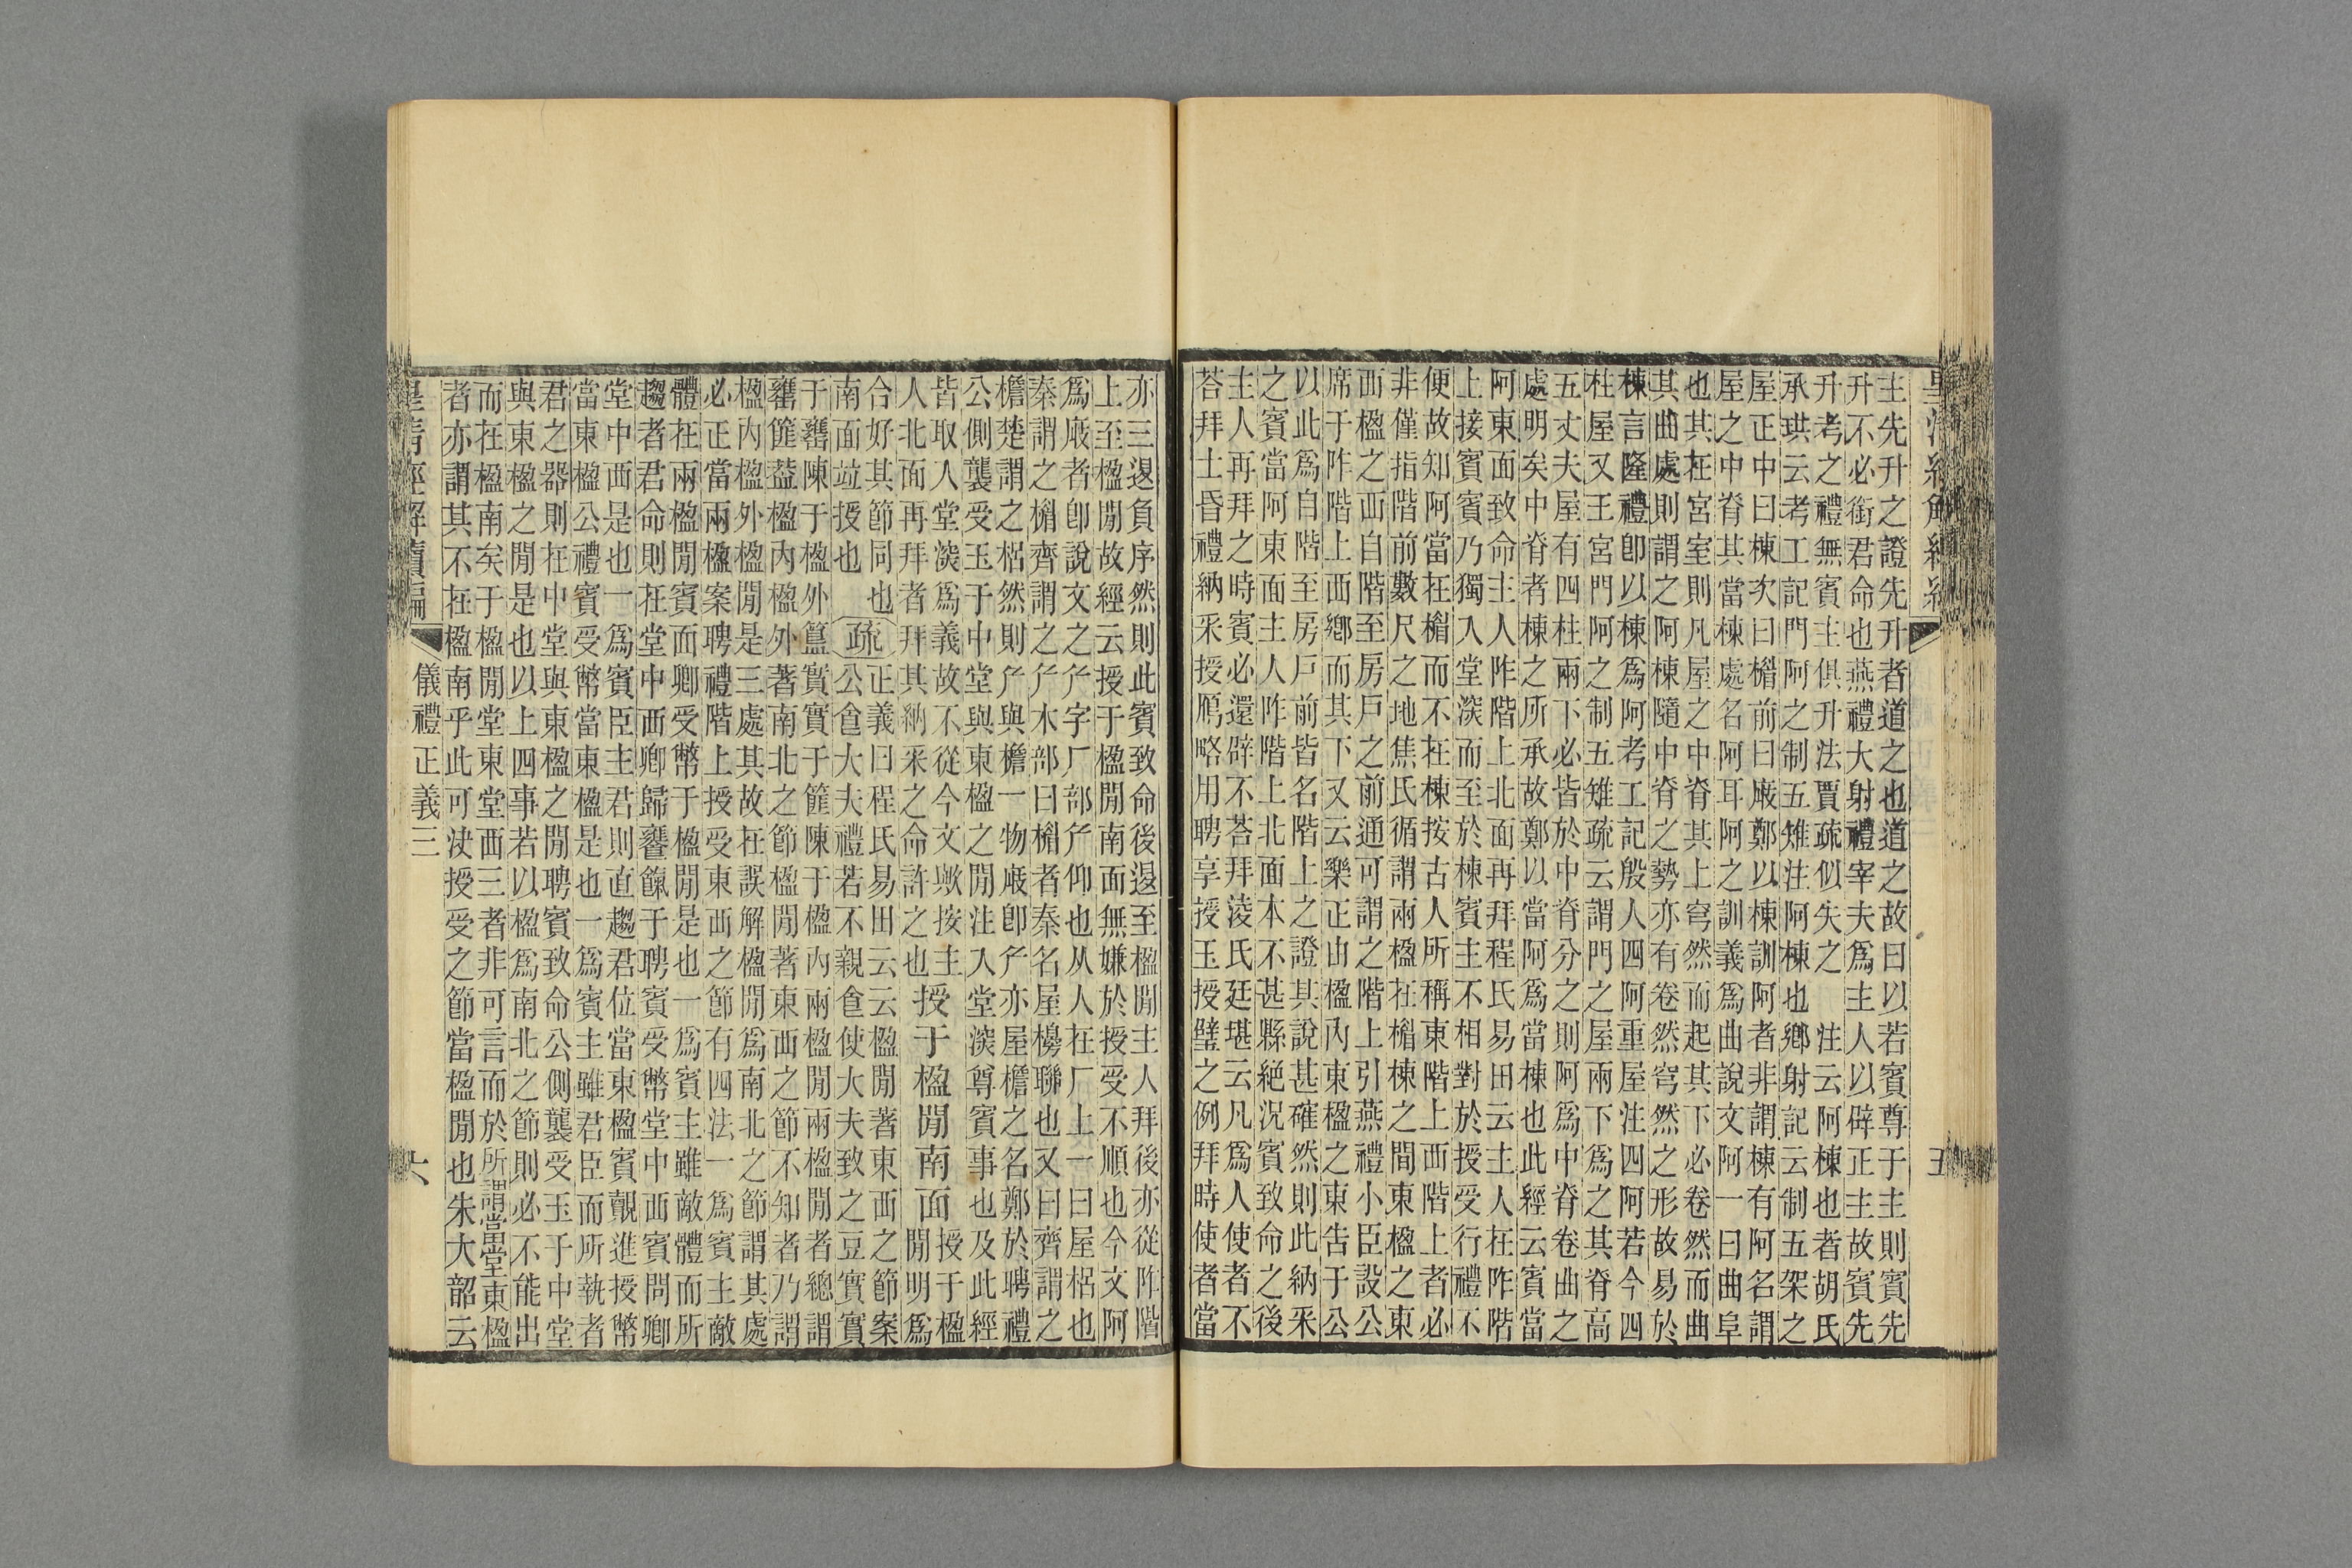 主先升之證先升者道之也道之故曰以若賓尊于主則賓先
升不必銜君命也燕禮大射禮宰夫爲主人以辟正主故賓先
升考之禮無賓主俱升法賈疏似失之 注云阿棟也者胡氏
承珙云考工記門阿之制五雉注阿棟也鄉射記云制五架之
屋正中曰棟次曰楣前曰庪鄭以棟訓阿者非謂棟有阿名謂
屋之中脊其當棟處名阿耳阿之訓義爲曲說文阿一曰曲阜
也其在宮室則凡屋之中脊其上穹然而起其下必卷然而曲
其曲處則謂之阿棟隨中脊之勢亦有卷然穹然之形故易於
棟言隆禮卽以棟爲阿考工記殷人四阿重屋注四阿若今四
柱屋又王宮門阿之制五雉疏云謂門之屋兩下爲之其脊高
五丈夫屋有四柱兩下必皆於中脊分之則阿爲中脊卷曲之
處明矣中脊者棟之所承故鄭以當阿爲當棟也此經云賓當
阿東面致命主人阼階上北面再拜程氏易田云主人在阼階
上接賓賓乃獨入堂深而至於棟賓主不相對於授受行禮不
便故知阿當在楣而不在棟按古人所稱東階上西階上者必
非僅指階前數尺之地焦氏循謂兩楹在楣棟之間東楹之東
西楹之西自階至房戶之前通可謂之階上引燕禮小臣設公
席于阼階上西鄉而其下又云樂正由楹內東楹之東告于公
以此爲自階至房戶前皆名階上之證其說甚確然則此納采
之賓當阿東面主人阼階上北面本不甚縣絕況賓致命之後
主人再拜之時賓必還辟不荅拜淩氏廷堪云凡爲人使者不
荅拜士昏禮納采授鴈略用聘享授玉授璧之例拜時使者當
亦三退負序然則此賓致命後退至楹閒主人拜後亦從阼階
上至楹閒故經云授于楹閒南面無嫌於授受不順也今文阿
爲庪者卽說文之屵字厂部屵仰也从人在厂上一曰屋梠也
秦謂之楣齊謂之屵木部曰楣者秦名屋櫋聯也又曰齊謂之
檐楚謂之梠然則屵與檐一物庪卽屵亦屋檐之名鄭於聘禮
公側襲受玉于中堂與東楹之閒注入堂深尊賓事也及此經
皆取入堂深爲義故不從今文歟按主
人北面再拜者拜其納采之命許之也
授于楹閒南面
授于楹
閒明爲
合好其節同也
南面竝授也
疏
正義曰程氏易田云云楹閒著東西之節案
公食大夫禮若不親食使大夫致之豆實實
于罋陳于楹外簋實實于筐陳于楹內兩楹閒兩楹閒者總謂
罋筐葢楹內楹外著南北之節楹閒著東西之節不知者乃謂
楹內楹外楹閒是三處其故在誤解楹閒爲南北之節謂其處
必正當兩楹案聘禮階上授受東西之節有四法一爲賓主敵
體在兩楹閒賓面卿受幣于楹閒是也一爲賓主雖敵體而所
趨者君命則在堂中西卿歸饔餼于聘賓受幣堂中西賓問卿
堂中西是也一爲賓臣主君則直趨君位當東楹賓覿進授幣
當東楹公禮賓受幣當東楹是也一爲賓主雖君臣而所執者
君之器則在中堂與東楹之閒聘賓致命公側襲受玉于中堂
與東楹之閒是也以上四事若以楹爲南北之節則必不能出
而在楹南矣于楹閒堂東堂西三者非可言而於所謂當堂東楹
者亦謂其不在楹南乎此可決授受之節當楹閒也朱大韶云
儀禮正義三
六